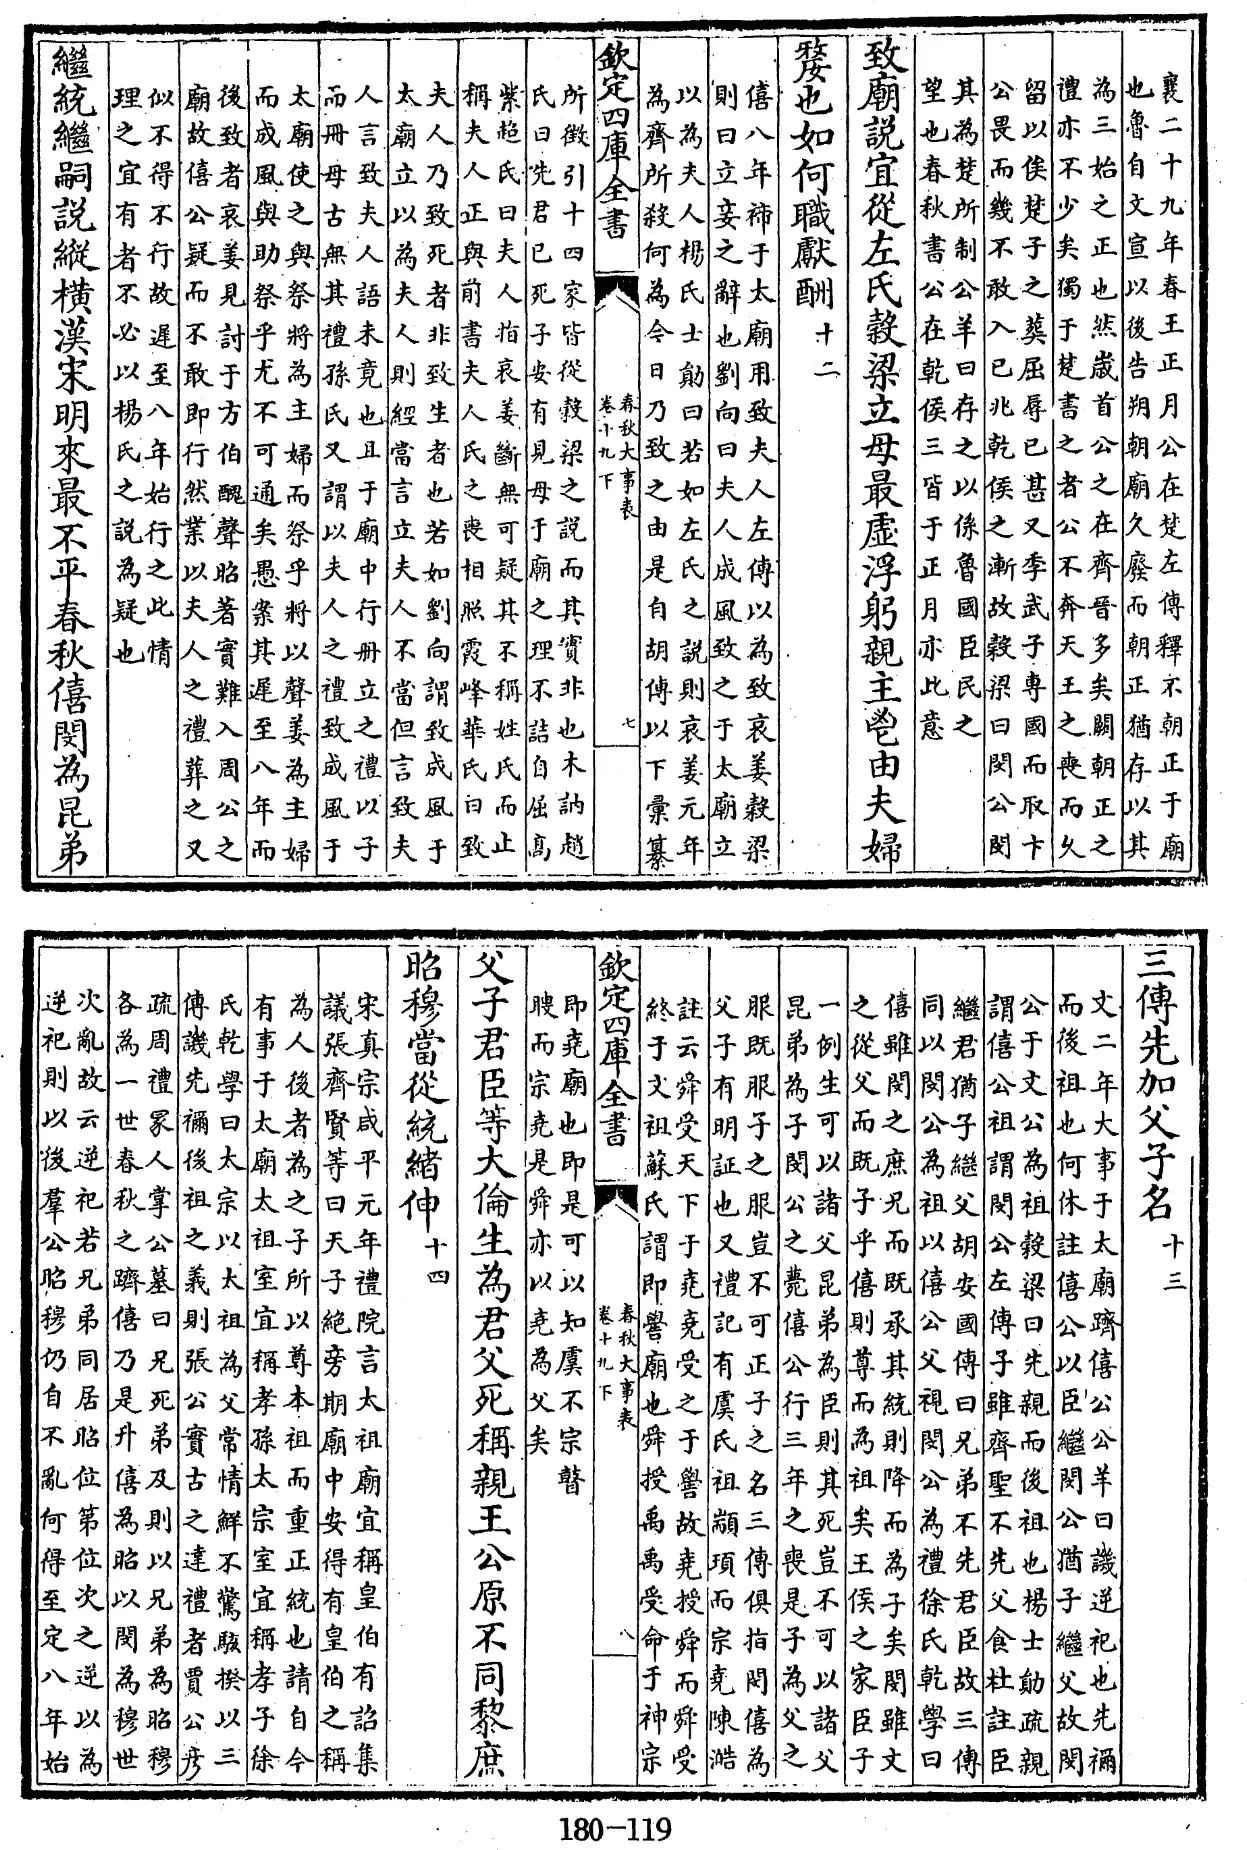 襄二十九年春王正月公在楚左傳釋不朝正于廟
也魯自文宣以後告朔朝廟久廢而朝正猶存以其
為三始之正也然歲首公之在齊晉多矣闕朝正之
禮亦不少矣獨于楚書之者公不奔天王之喪而久
留以俟楚子之葬屈辱已甚又季武子專國而取卞
公畏而幾不敢入已兆乾侯之漸故穀梁曰閔公閔
其為楚所制公羊曰存之以係魯國臣民之
望也春秋書公在乾侯三皆于正月亦此意
致廟說宜從左氏穀梁立母最虛浮躬親主鬯由夫婦
嫠也如何職獻酬十二
僖八年禘于太廟用致夫人左傳以為致哀姜穀梁
則曰立妾之辭也劉向曰夫人成風致之于太廟立
以為夫人楊氏士勛曰若如左氏之說則哀姜元年
為齊所殺何為今日乃致之由是自胡傳以下彙纂
欽定四庫全書
春秋大事表
卷十九下
七
所徵引十四家皆從穀梁之說而其實非也木訥趙
氏曰先君已死子安有見母于廟之理不詰自屈高
紫超氏曰夫人指哀姜斷無可疑其不稱姓氏而止
稱夫人正與前書夫人氏之喪相照霞峰華氏曰致
夫人乃致死者非致生者也若如劉向謂致成風于
太廟立以為夫人則經當言立夫人不當但言致夫
人言致夫人語未竟也且于廟中行冊立之禮以子
而冊母古無其禮孫氏又謂以夫人之禮致成風于
太廟使之與祭將為主婦而祭乎將以聲姜為主婦
而成風與助祭乎尤不可通矣愚案其遲至八年而
後致者哀姜見討于方伯醜聲昭著實難入周公之
廟故僖公疑而不敢即行然業以夫人之禮葬之又
似不得不行故遲至八年始行之此情
理之宜有者不必以楊氏之說為疑也
繼統繼嗣說縱橫漢宋明來最不平春秋僖閔為昆弟
三傳先加父子名十三
文二年大事于太廟躋僖公公羊曰譏逆祀也先禰
而後祖也何休註僖公以臣繼閔公猶子繼父故閔
公于文公為祖穀梁曰先親而後祖也楊士勛疏親
謂僖公祖謂閔公左傳子雖齊聖不先父食杜註臣
繼君猶子繼父胡安國傳曰兄弟不先君臣故三傳
同以閔公為祖以僖公父視閔公為禮徐氏乾學曰
僖雖閔之庶兄而既承其統則降而為子矣閔雖文
之從父而既子乎僖則尊而為祖矣王侯之家臣子
一例生可以諸父昆弟為臣則其死豈不可以諸父
昆弟為子閔公之薨僖公行三年之喪是子為父之
服既服子之服豈不可正子之名三傳俱指閔僖為
父子有明証也又禮記有虞氏祖顓頊而宗堯陳澔
註云舜受天下于堯堯受之于嚳故堯授舜而舜受
終于文祖蘇氏謂即嚳廟也舜授禹禹受命于神宗
欽定四庫全書
春秋大事表
卷十九下
八
即堯廟也即是可以知虞不宗瞽
瞍而宗堯是舜亦以堯為父矣
父子君臣等大倫生為君父死稱親王公原不同黎庶
昭穆當從統緒伸十四
宋真宗咸平元年禮院言太祖廟宜稱皇伯有詔集
議張齊賢等曰天子絕旁期廟中安得有皇伯之稱
為人後者為之子所以尊本祖而重正統也請自今
有事于太廟太祖室宜稱孝孫太宗室宜稱孝子徐
氏乾學曰太宗以太祖為父常情鮮不驚駭揆以三
傳譏先禰後祖之義則張公實古之達禮者賈公彥
疏周禮冢人掌公墓曰兄死弟及則以兄弟為昭穆
各為一世春秋之躋僖乃是升僖為昭以閔為穆世
次亂故云逆祀若兄弟同居昭位第位次之逆以為
逆祀則以後羣公昭穆仍自不亂何得至定八年始
180-119